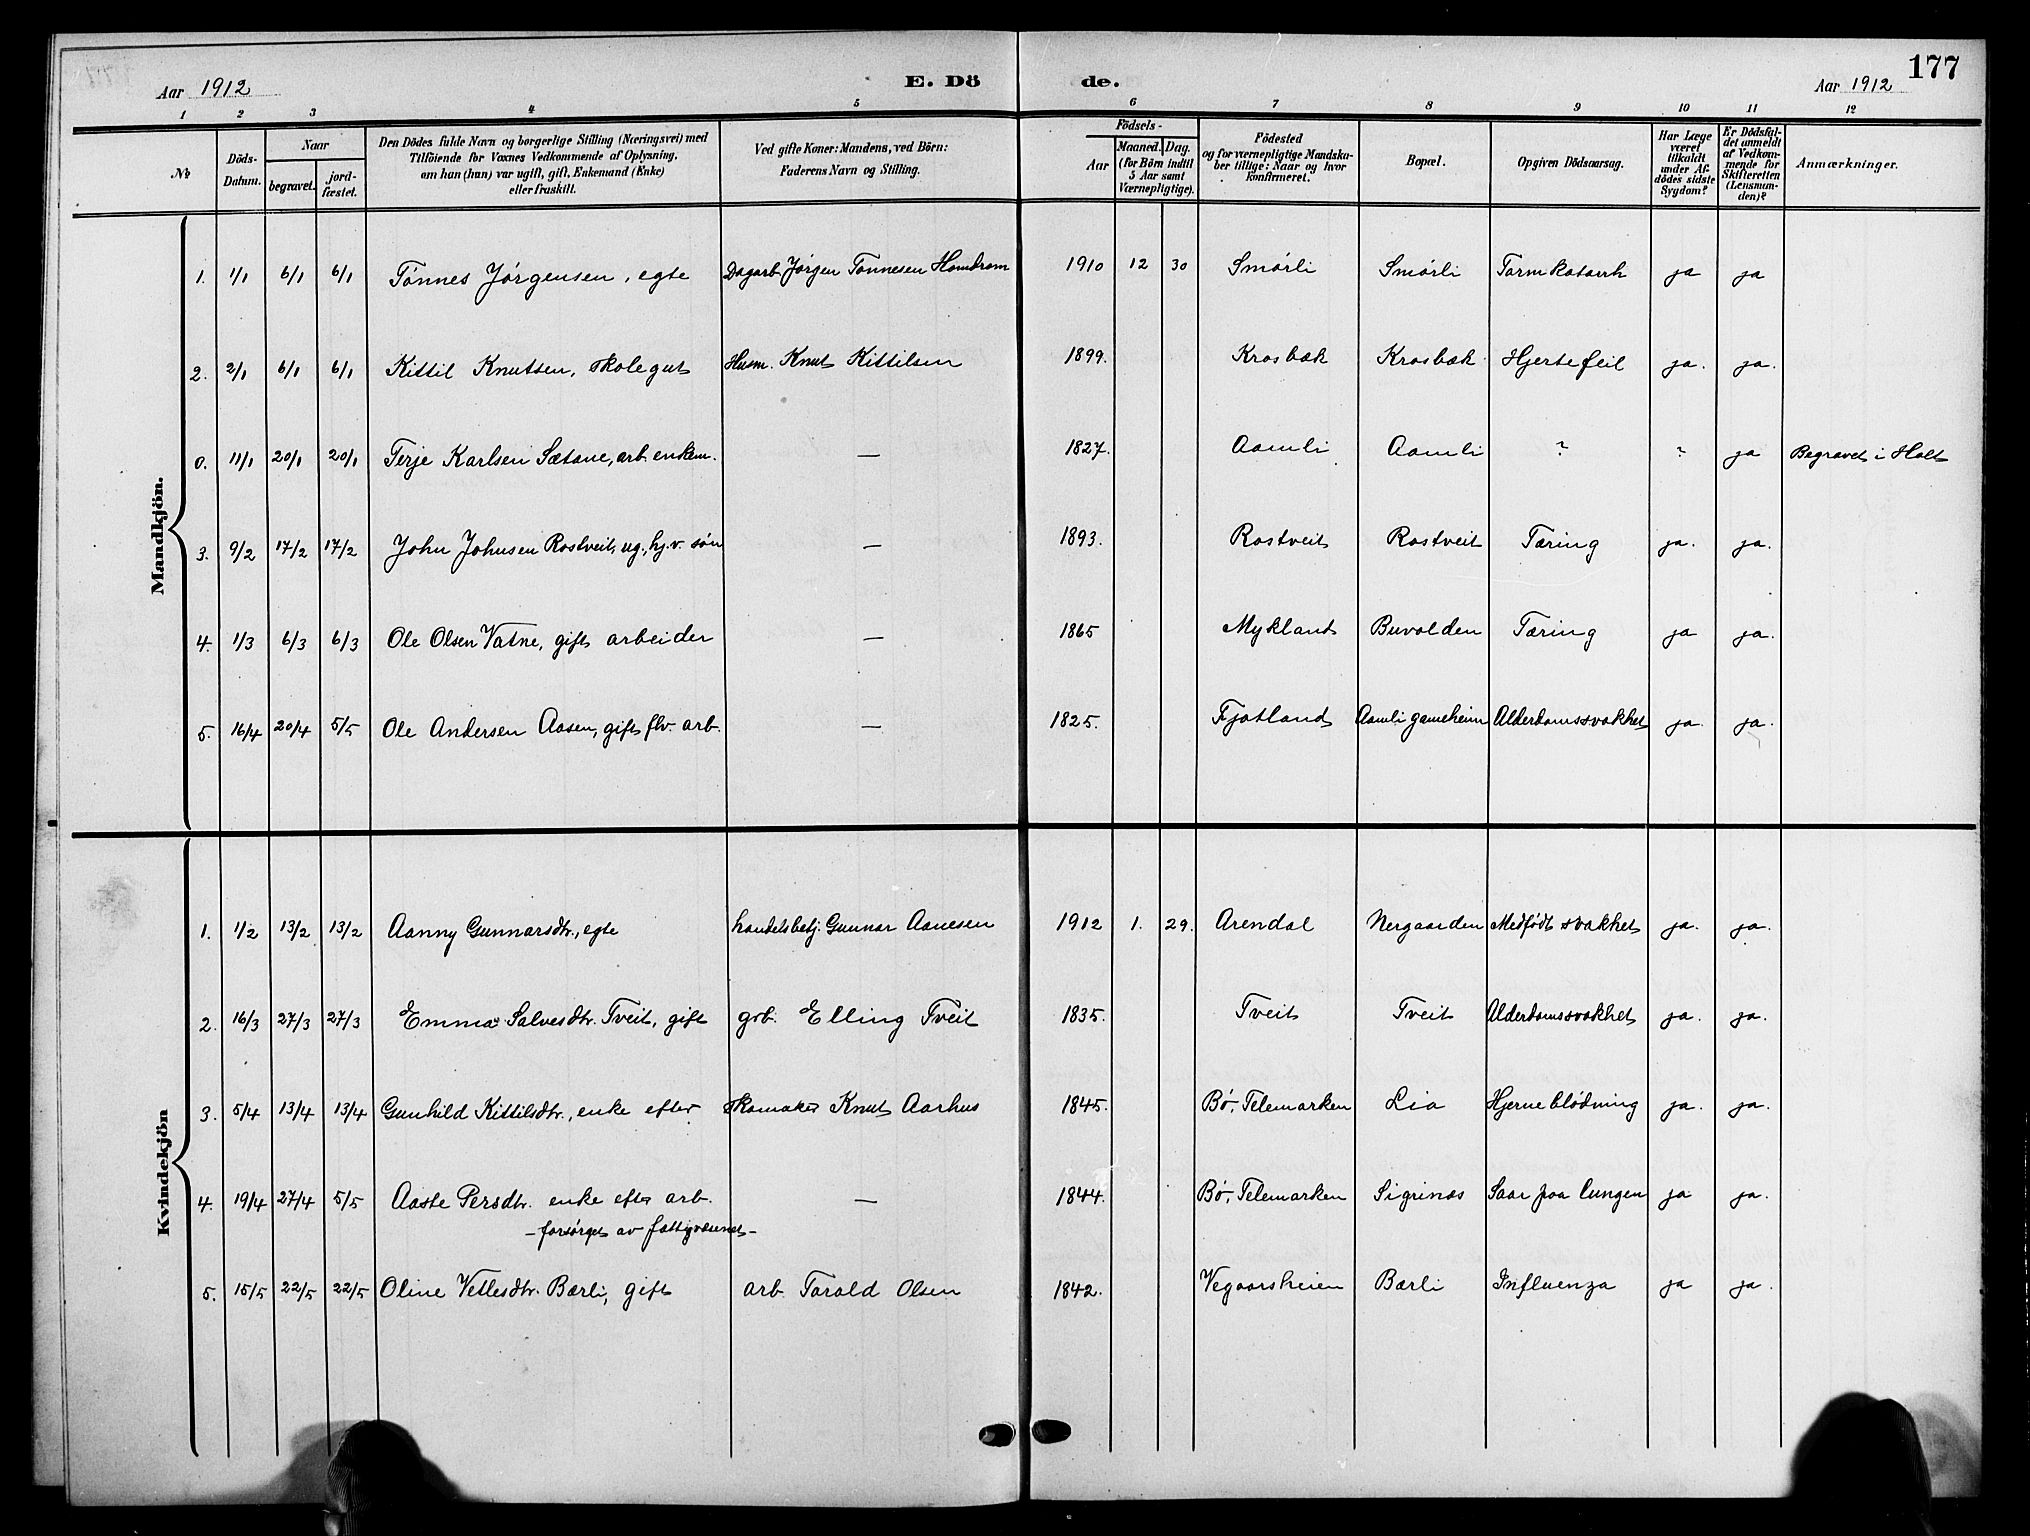 177
Aar 1912 E. Dö de. Aar 1912
1 2 3 4 5 6 7 8 9 10 11 12
No
Döds-Datum.
Naar
begravet.
jord-fæstet.
Den Dödes fulde Navn og borgerlige Stilling (Næringsvei) med
Tilföiende for Voxnes Vedkommende af Oplysning,
om han (hun) var ugift, gift, Enkemand (Enke)
eller fraskilt.
Ved gifte Koner: Mandens, ved Börn:
Faderens Navn og Stilling.
Födsels-
Aar
Maaned. Dag.
(for Börn indtil
5 Aar samt
Værnepligtige).
Födested
og for værnepligtige Mandska-
ber tillige: Naar og hvor
konfirmeret.
Bopæl.
Opgiven Dödsaarsag.
Har Læge
været
tilkaldt
under Af-
dödes sidste
Sygdom?
Er Dödsfal-
det anmeldt
af Vedkom-
mende for
Skifteretten
(Lensman-
den)?
Anmærkninger.
Mandkjön.
1. 1/1 6/1 6/1 Tønnes Jørgensen, egte Dagarb. Jørgen Tønnesen Homdrom 1910 12 30 Smørli Smørli Tarmkatarrh ja ja
2. 2/1 6/1 6/1 Kittil Knutsen, skolegut Husm. Knut Kittilsen 1899. Krosbæk Krosbæk Hjertefeil ja. ja.
0. 11/1 20/1 20/1 Terje Karlsen Sætane, arb. enkem. — 1827. Aamli Aamli ? ? ja Begravet i Holt
3. 9/2 17/2 17/2 John Johnsen Rostveit, ug., hj.v. søn — 1893. Rostveit Rostveit Tæring ja. ja.
4. 1/3 6/3 6/3 Ole Olsen Vatne, gift arbeider — 1865 Mykland Buvolden Tæring ja ja.
5. 16/4 20/4 5/5 Ole Andersen Aasen, gift flv. arb. — 1825. Fjotland Aamli gameheim Alderdomssvakhet ja. ja.
Kvindekjön
1. 1/2 13/2 13/2 Aanny Gunnarsdtr., egte handelsbetj. Gunnar Aanesen 1912 1. 29. Arendal Nergaarden Medfødt svakhet ja. ja.
2. 16/3 27/3 27/3 Emma Salvesdtr. Tveit, gift grb. Elling Tveit 1835. Tveit Tveit Alderdomssvakhet ja. ja.
3. 5/4 13/4 13/4 Gunhild Kittilsdtr., enke efter skomaker Knut Aarhus 1845. Bø, Telemarken Lia Hjerneblødning ja. ja.
4. 19/4 27/4 5/5 Aaste Persdtr. enke efter arb. — 1844. Bø, Telemarken Sigrinæs Saar paa lungen ja ja.
- forsørget av fattigvæsenet -
5. 15/5 22/5 22/5 Oline Vetlesdtr. Bærli, gift arb. Torald Olsen 1842. Vegaarsheien Bærli Influenza ja ja.